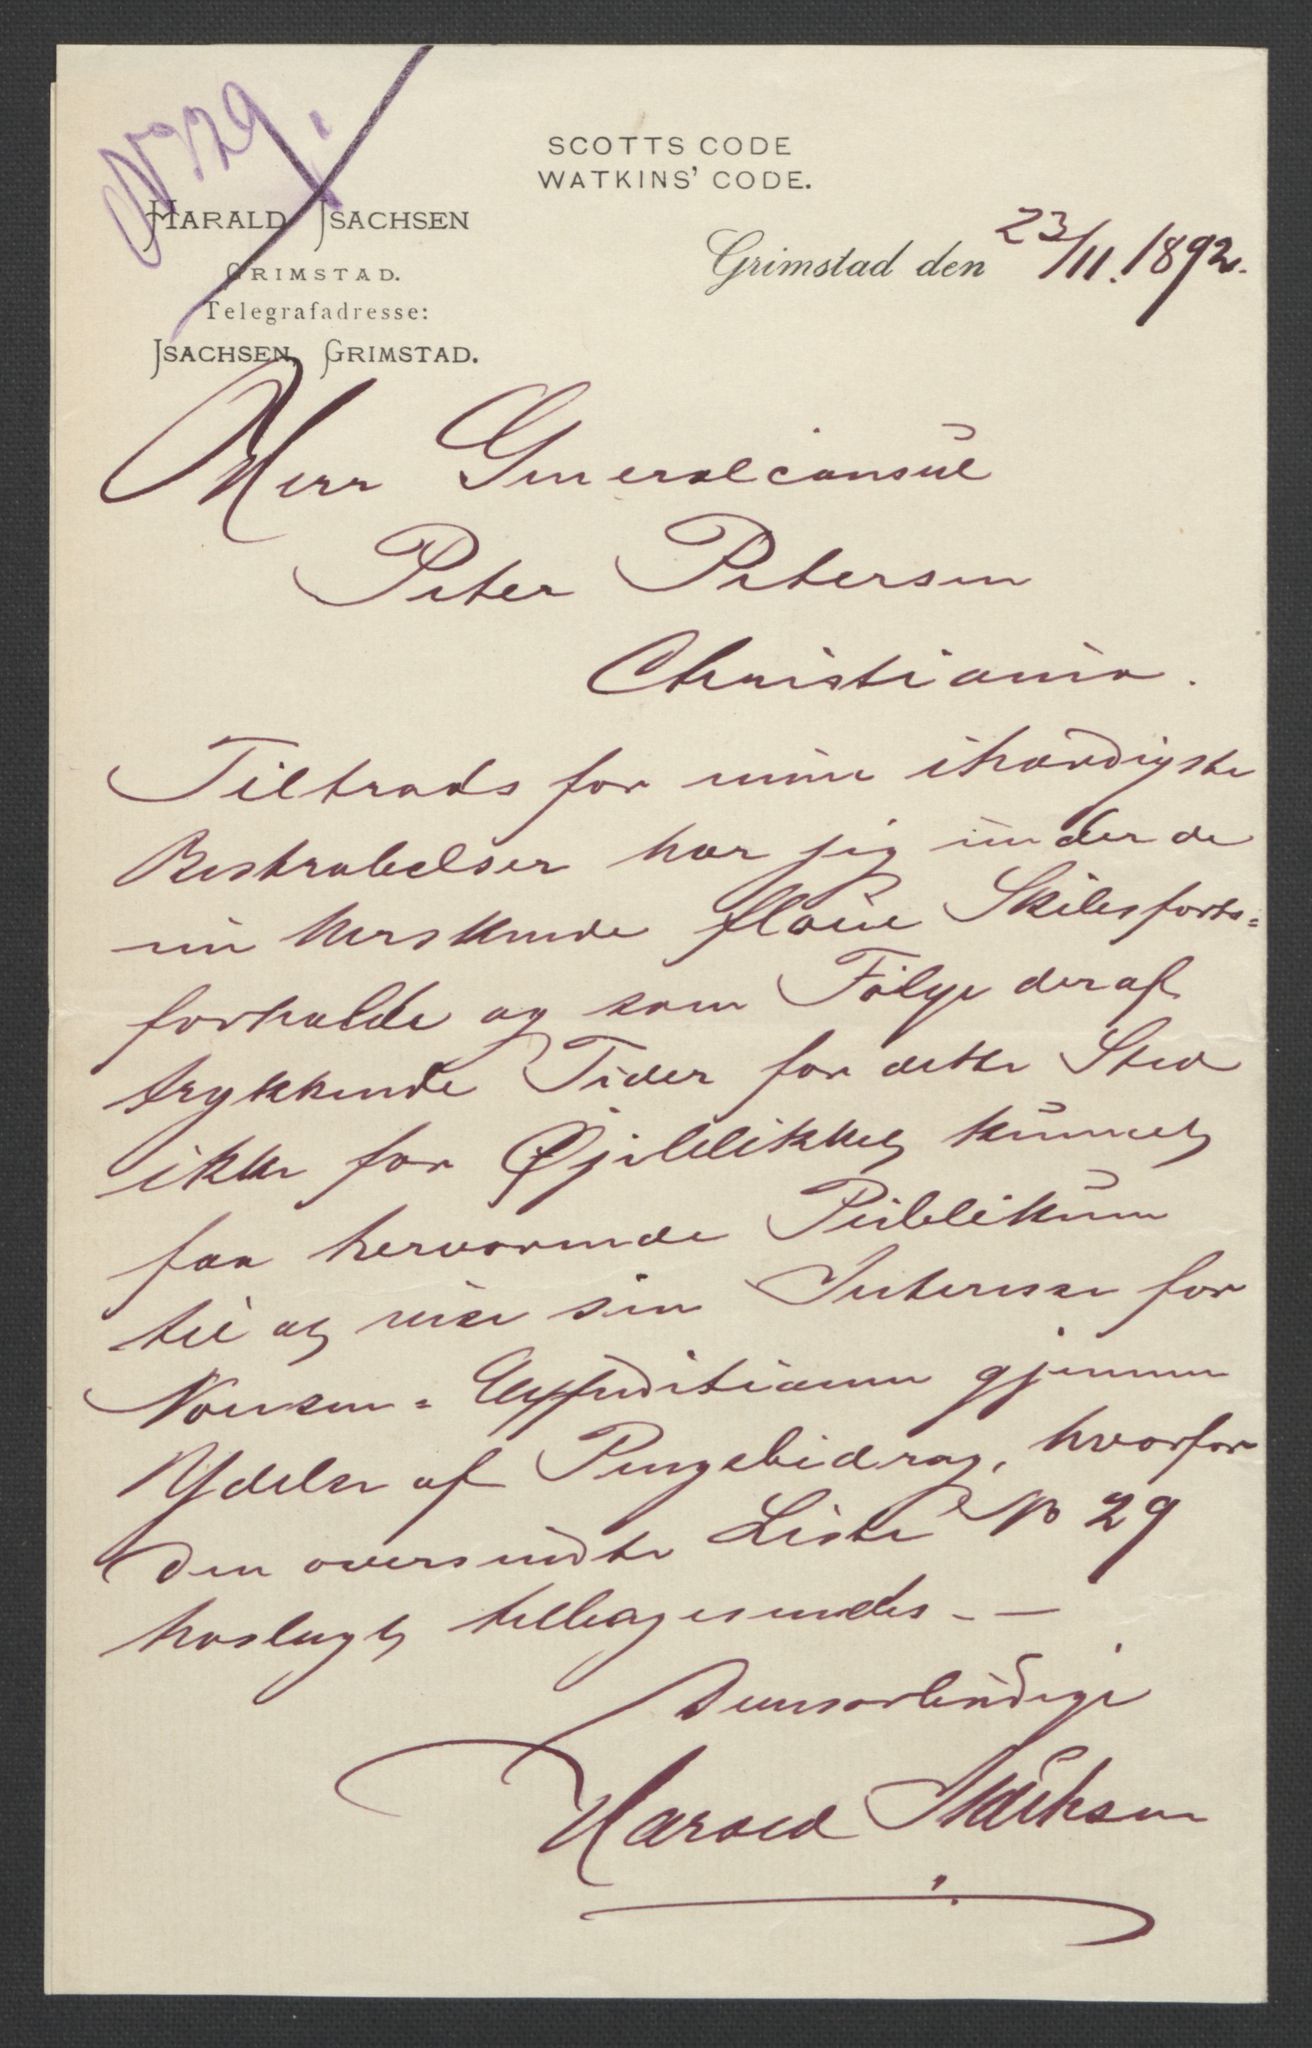 No 29.
SCOTTS CODE
WATKINS' CODE.
HARALD ISACHSEN
GRIMSTAD.
Telegrafadresse:
ISACHSEN, GRIMSTAD.
Grimstad den 23/11. 1892.
Herr Generalconsul
Peter Petersen
Christiania.
Tiltrods for mine ihærdigste
Bestræbelser har jeg under de
nu herskende flaue Skibsfarts=
forholde og som Følge deraf
trykkende Tider for dette Sted
ikke for Øjeblikket kunnet
faa herværende Publikum
til at vise sin Interesse for
Nansen=Expeditionen gjennem
Ydelse af Pengebidrag, hvorfor
den oversendte Liste No 29
hoslagt tilbagesendes. —
Deresærbødige
Harald Isachsen